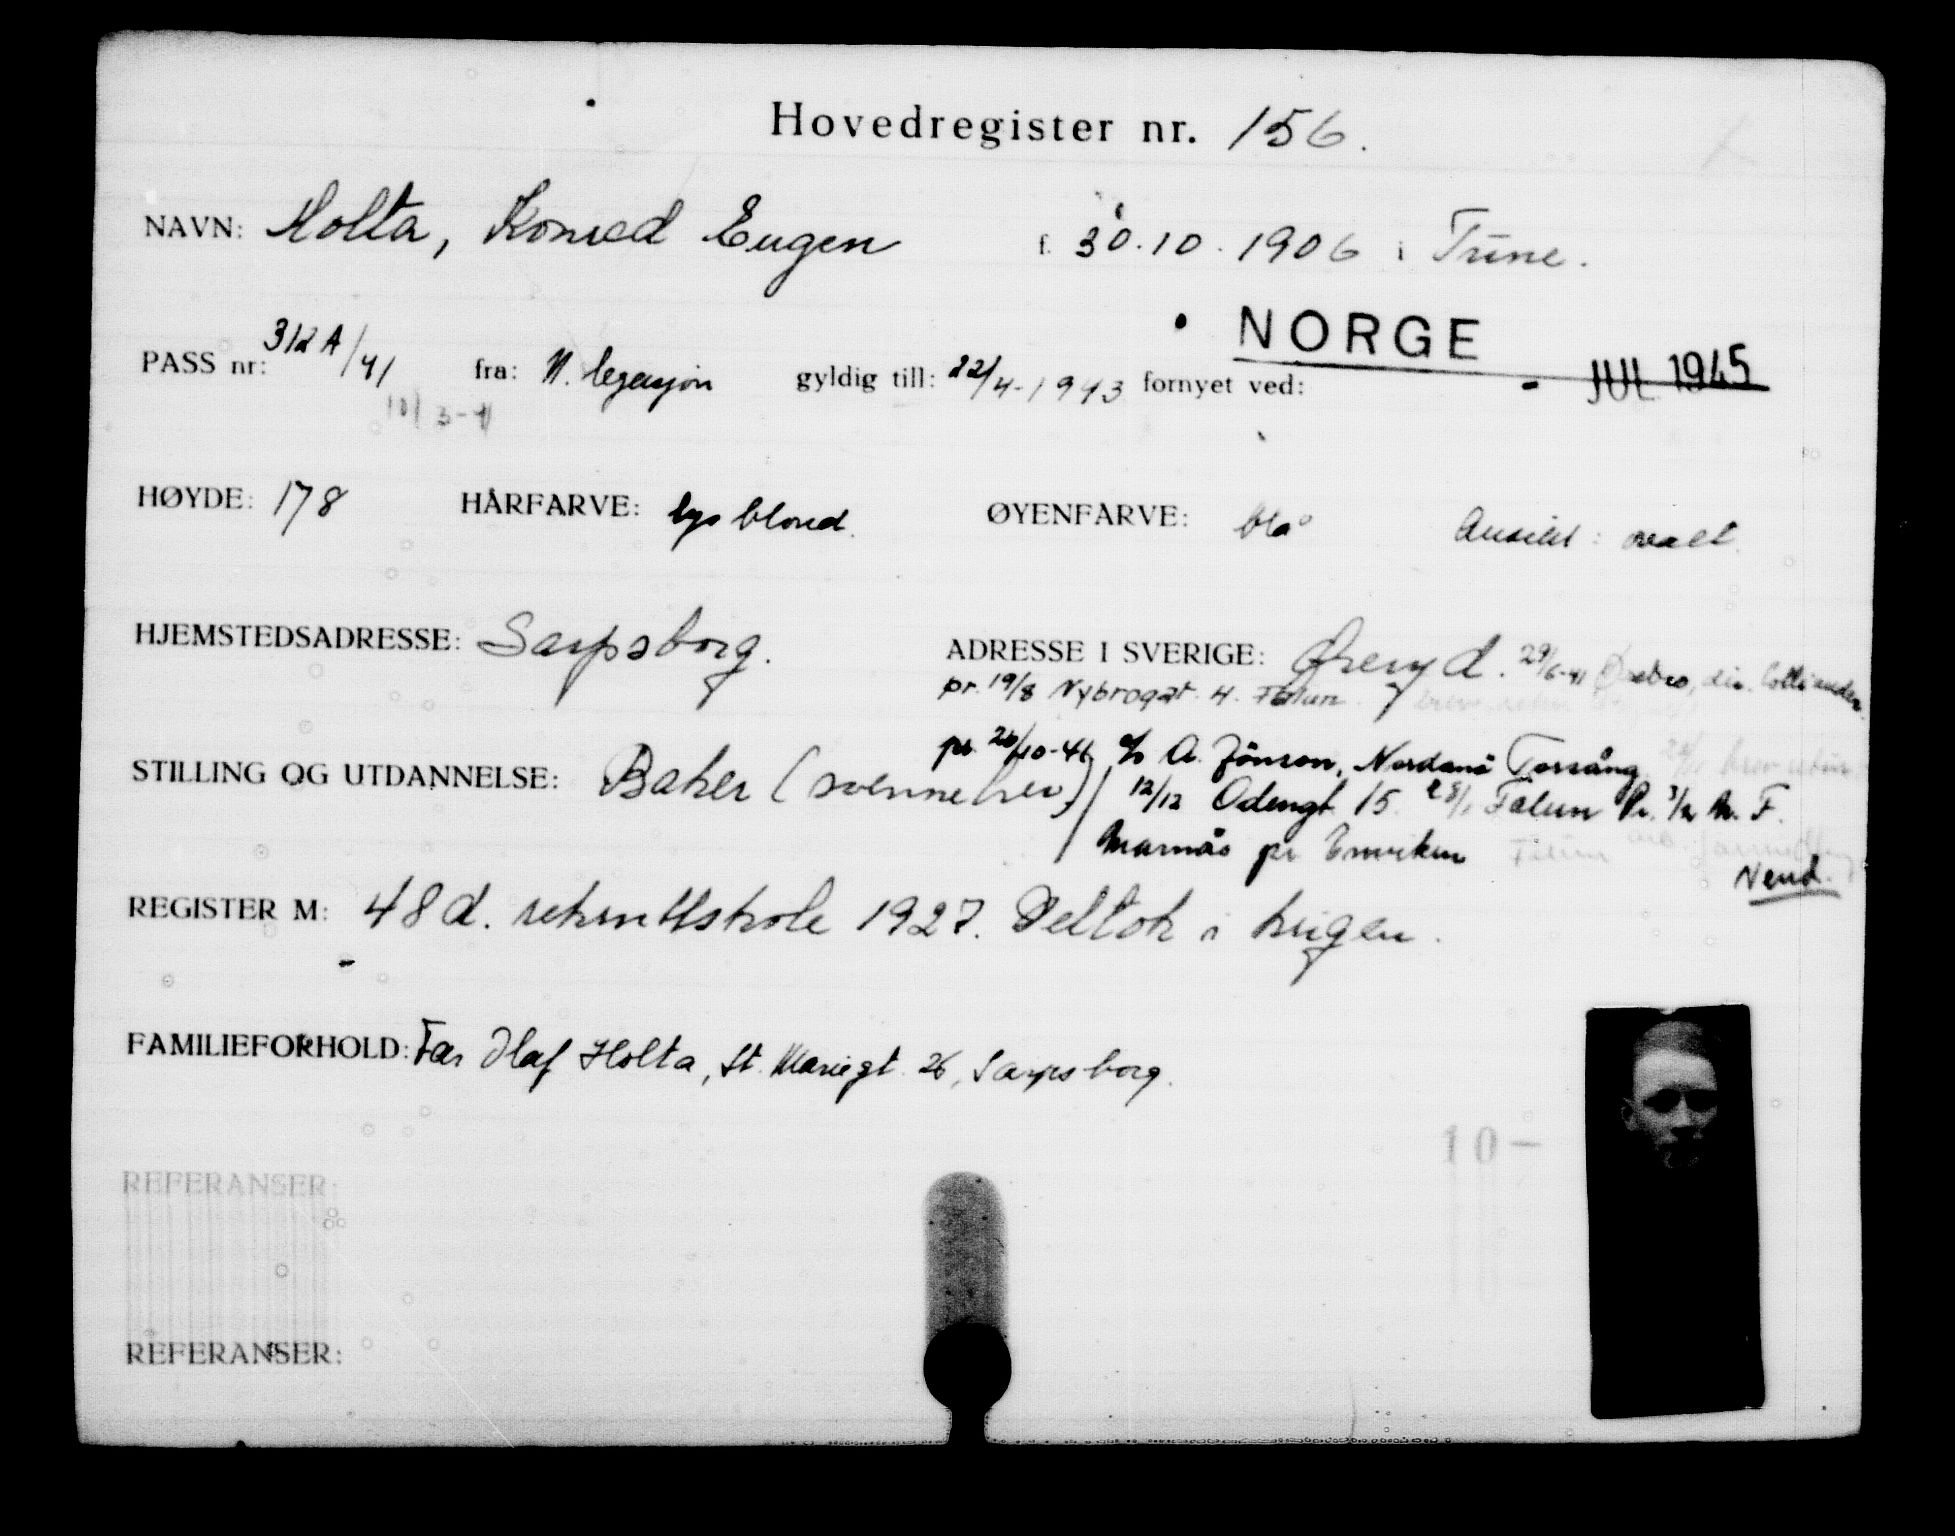 Hovedregister nr. 156.
NAVN: Holta, Konrad Eugen f. 30.10.1906 i Tune.
NORGE
PASS nr: 312A/41 fra: N. legasjon gyldig till: 22/4-1943 fornyet ved: - JUL 1945
10/3-41
HØYDE: 178 HÅRFARVE: lys blond. ØYENFARVE: blå Ansikt: ovalt.
HJEMSTEDSADRESSE: Sarpsborg. ADRESSE I SVERIGE: Øreryd. 29/6-41 Örebro, dir.
pr. 19/8 Nybrogat. 4. Falun.
pr. 26/10-41 c/o A. Jönson, Nordanå Torsång
STILLING OG UTDANNELSE: Baker (svennebrev) 12/12 Odengt 15. 28/1 Falun Pr. 3/2 N. F.
Marnäs pr Enviken Falun
Vend.
REGISTER M: 48 d. rekruttskole 1927. Deltok i krigen.
FAMILIEFORHOLD: Far Olaf Holta, St. Mariegt. 26, Sarpsborg.
10-
REFERANSER:
REFERANSER: